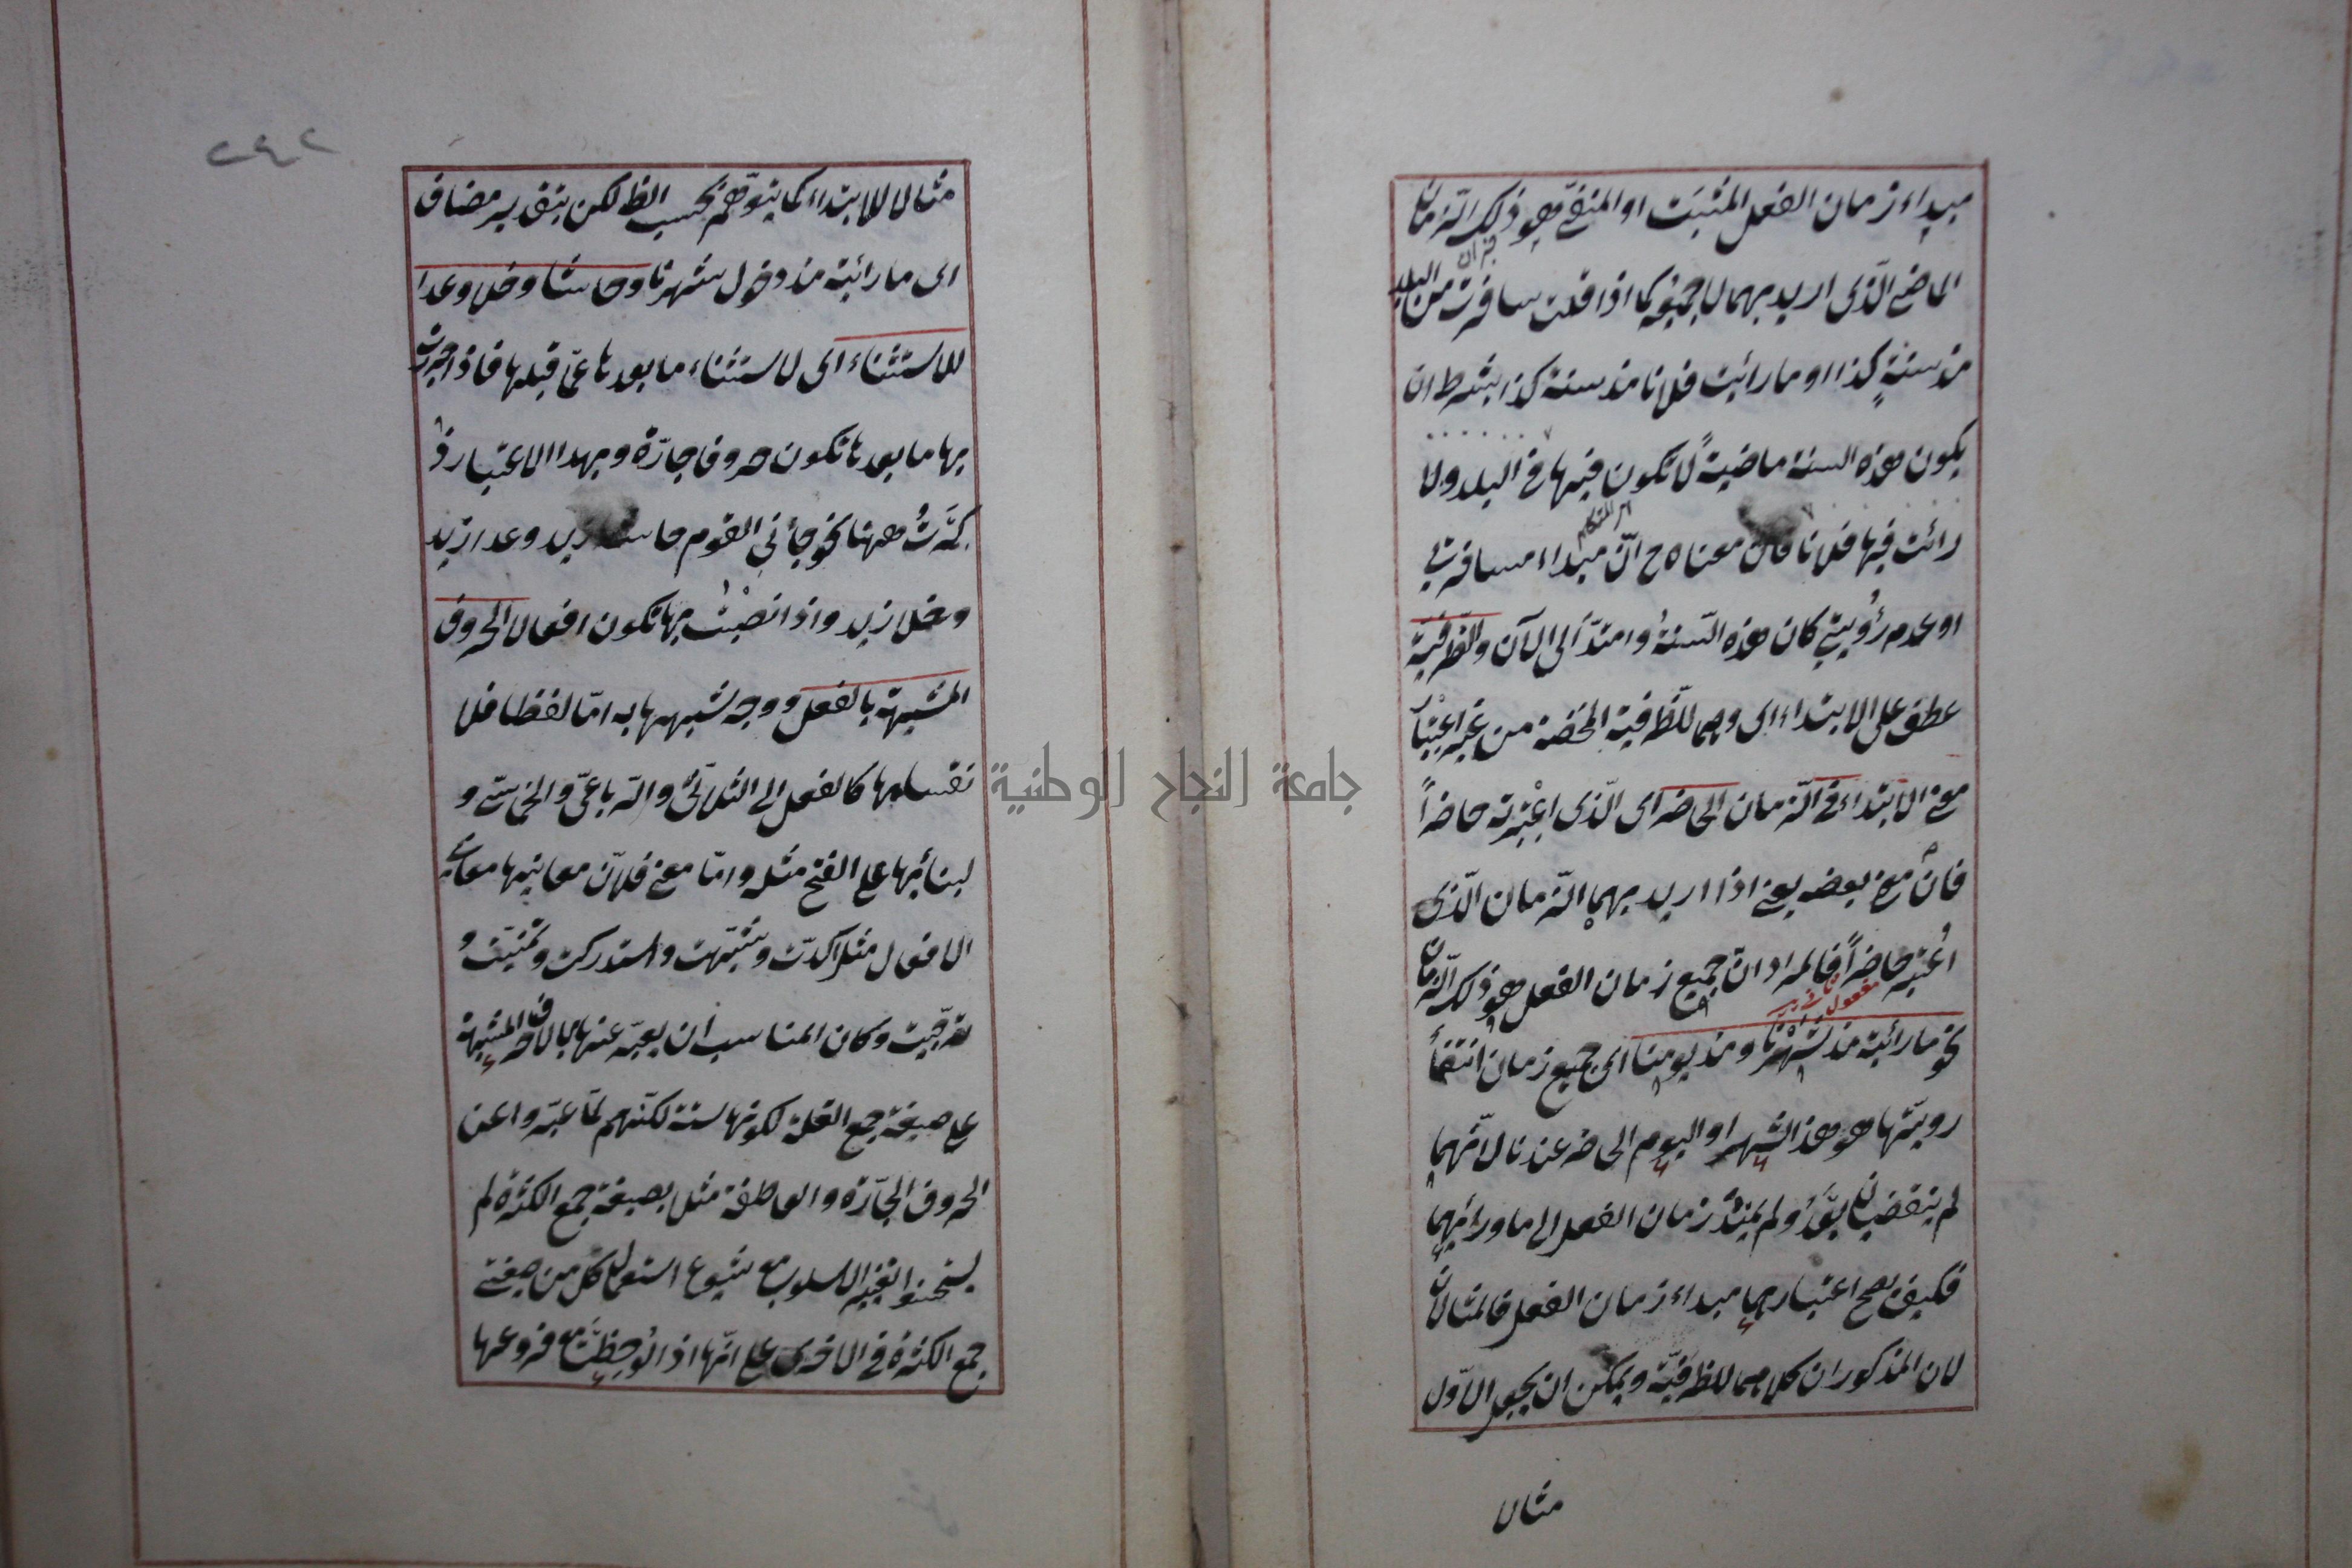 مبداء زمان الفعل المثبت او المنفي هو ذلك الزمان
الماضي الذي اريد بهما لا جميعه كما اذا قلت سافرت من البلد
مذ سنة كذا او ما رائيت فلانا مذ سنة كذا بشرط ان
يكون هذه السنة ماضية لا تكون فيها في البلد ولا
رائت فيها فلانا فان معناه ح ان مبداء مسافرتي
او عدم رؤيتي كان هذه السنة وامتد الى الآن والظرفية
عطف على الابتداء اى وهما للظرفية المحضة من غير اعتبار
معنى الابتداء في الزمان الحاضر اى الذى اعتبرته حاضراً
فان مع بعضه يعني اذا اريد بهما الزمان الذى
اعتبر حاضراً فالمراد ان جميع زمان الفعل هو ذلك الزمان
مفعول
نحو ما رائيته مذ شهرنا ومذ يومنا اى جميع زمان انتفأ
رويتها هو هذ الشهر او اليوم الحاضر عندنا لانهما
لم ينقضيا بعد ولم يمتد زمان الفعل الى ما ورائهما
فكيف يصح اعتبارهما مبداء زمان الفعل فالمثالان
لان المذكوران كلاهما للظرفية ويمكن ان يجعل الاول
مثالا
٢٤٢
مثالا للابتداء كما يتوهم بحسب الظ لكن بتقدير مضاف
اى ما رائيته مذ دخول شهرنا وحاشا وخلا وعدا
للاستثناء اى لاستثناء ما بعدها عما قبلها فاذا جررت
بها ما بعدها تكون حروفا جارة وبهدا الاعتبار ذ
كرت ههنا نحو جأني القوم حاشا زيد وعدا زيد
وخلا زيد واذا نصبت بها تكون افعالا الحروف
المشبهة بالفعل ووجه شبهها به اما لفظا فلا
نقسامها كالفعل الى الثلاثي والرباعي والخماسي و
لبنائها على الفتح مثله واما معنى فلان معانيها معاني
الافعال مثل اكدت وشبهت واستدركت وتمنيت و
ترجيت وكان المناسب ان يعبر عنها بالاحرف المشبهة
على صيغة جمع القلة لكونها ستة لكنهم لما عبروا عن
الحروف الجارة والعاطفة مثلا بصيغة جمع الكثرة لم
يستحسنوا تغيير الاسلوب مع شيوع استعمال كل من صيغتي
جمع الكثرة في الاخرى على انها اذا لوحظت مع فروعها
جامعة النجاح الوطنية